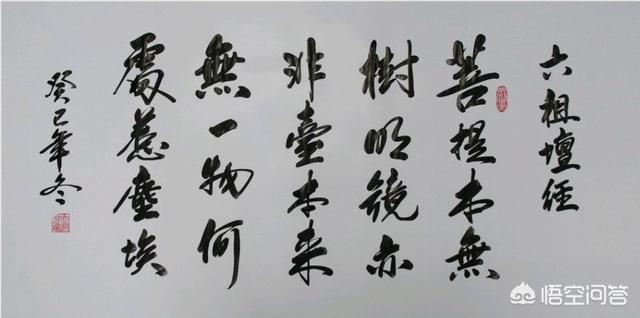 六祖壇經
菩提本無
樹明鏡亦
非臺本来
無一物何
處惹塵埃
癸巳年冬
悟空问答